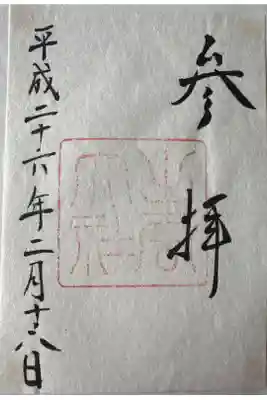 参拝
平成二十六年二月十八日